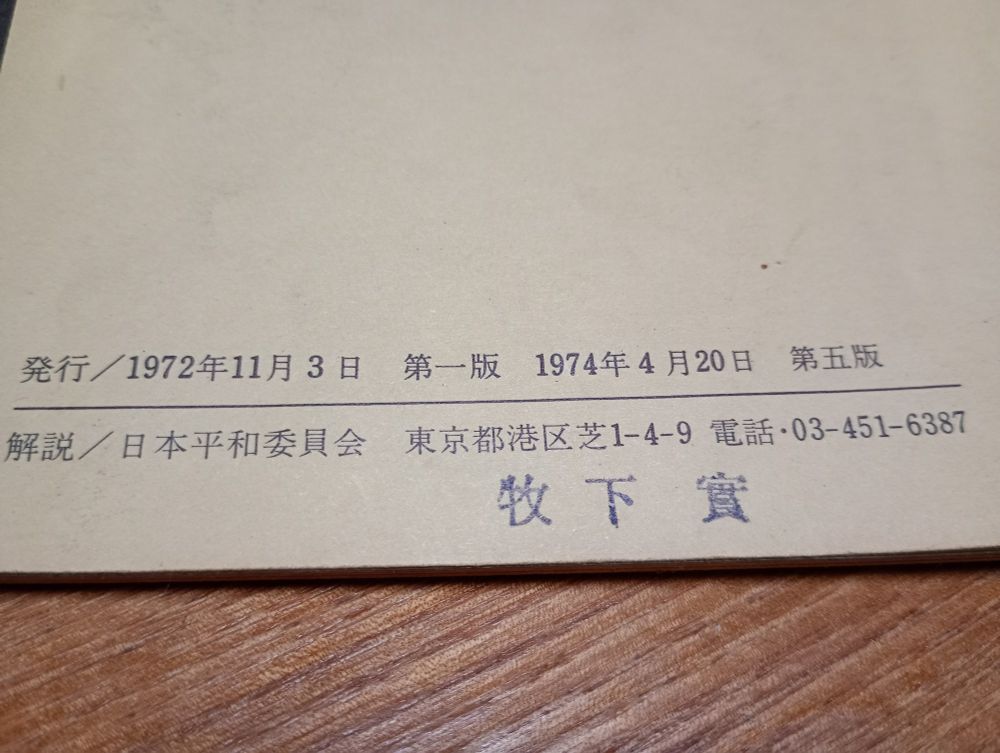 発行／1972年11月3日　第一版　1974年4月20日　第五版
解説／日本平和委員会　東京都港区芝1-4-9 電話・03-451-6387
牧下 實